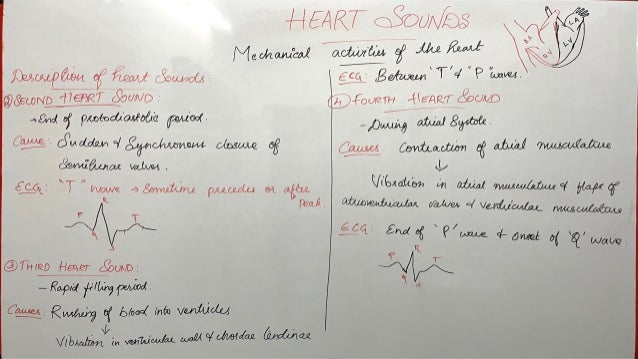 HEART SOUNDS
Mechanical activities of the heart
Description of heart Sounds:
② SECOND HEART SOUND:
→ End of protodiastolic period.
Cause: Sudden & Synchronous closure of
Semilunar valves.
ECG: "T" wave → Sometime precedes or after
peak
P R T
Q S
③ THIRD HEART SOUND:
- Rapid filling period.
Causes: Rushing of blood into ventricles
↓
Vibration in ventricular wall & chordae tendinae
RA LA
RV LV
ECG: Between "T" & "P" waves.
④ FOURTH HEART SOUND
- During atrial Systole.
Causes: Contraction of atrial musculature
↓
Vibration in atrial musculature & flaps of
atrioventricular valves & ventricular musculature.
ECG: End of 'P' wave & onset of 'Q' wave.
P R T
Q S